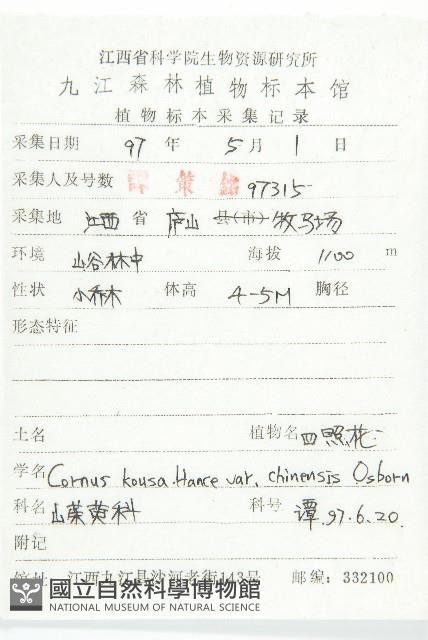 江西省科学院生物资源研究所
九江森林植物标本馆
植物标本采集记录
采集日期 97 年 5 月 1 日
采集人及号数 譚策銘 97315
采集地 江西 省 庐山 县(市) 牧马场
环境 山谷林中 海拔 1100 m
性状 小乔木 体高 4-5M 胸径
形态特征
土名 植物名 四照花
学名 Cornus kousa Hance var. chinensis Osborn
科名 山茱萸科 科号 谭.97.6.20.
附记
馆址 江西九江县沙河老街143号 邮编: 332100
國立自然科學博物館
NATIONAL MUSEUM OF NATURAL SCIENCE